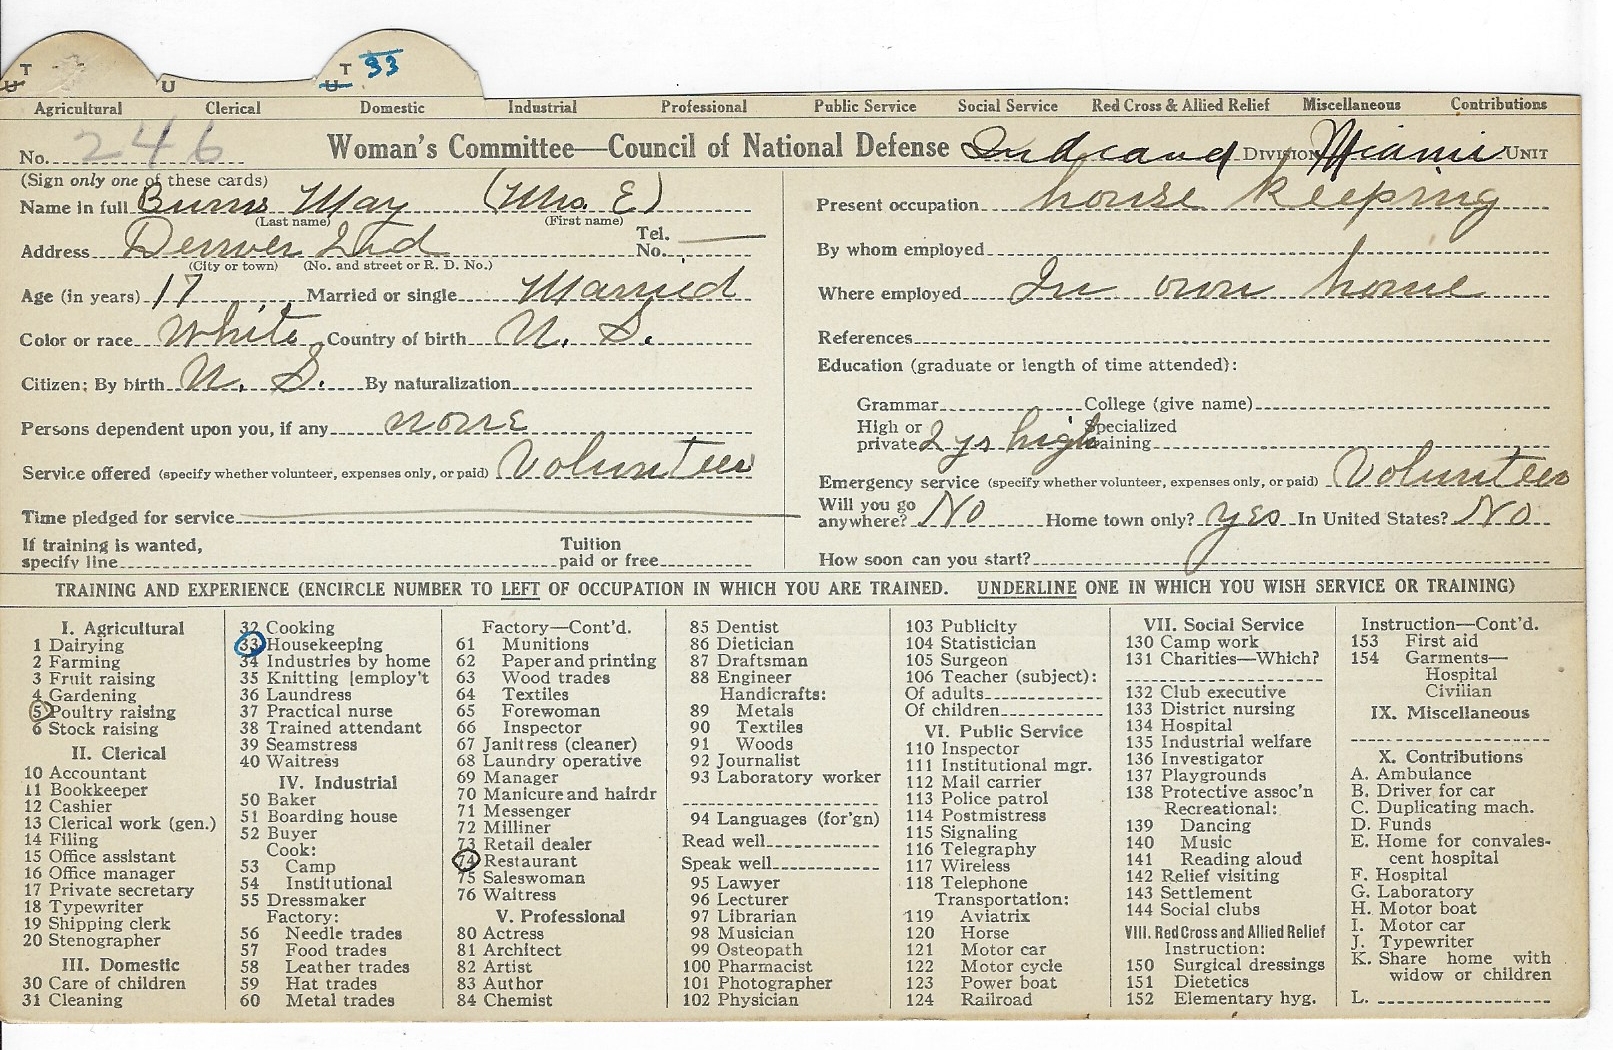 T
U
U
T
U
33
Agricultural Clerical Domestic Industrial Professional Public Service Social Service Red Cross & Allied Relief Miscellaneous Contributions
No. 246
Woman's Committee—Council of National Defense Indiana DIVISION Miami UNIT
(Sign only one of these cards)
Name in full Burns May (Mrs. E)
(Last name) (First name)
Address Denver Ind Tel. No.
(City or town) (No. and street or R. D. No.)
Age (in years) 17 Married or single Married
Color or race White Country of birth U. S.
Citizen: By birth U. S. By naturalization
Persons dependent upon you, if any none
Service offered (specify whether volunteer, expenses only, or paid) Volunteer
Time pledged for service
If training is wanted, specify line Tuition paid or free
Present occupation house keeping
By whom employed
Where employed In own home
References
Education (graduate or length of time attended):
Grammar College (give name)
High or private 2 ys high Specialized training
Emergency service (specify whether volunteer, expenses only, or paid) Volunteer
Will you go anywhere? No Home town only? yes In United States? No
How soon can you start?
TRAINING AND EXPERIENCE (ENCIRCLE NUMBER TO LEFT OF OCCUPATION IN WHICH YOU ARE TRAINED. UNDERLINE ONE IN WHICH YOU WISH SERVICE OR TRAINING)
I. Agricultural
1 Dairying
2 Farming
3 Fruit raising
4 Gardening
5 Poultry raising
6 Stock raising
II. Clerical
10 Accountant
11 Bookkeeper
12 Cashier
13 Clerical work (gen.)
14 Filing
15 Office assistant
16 Office manager
17 Private secretary
18 Typewriter
19 Shipping clerk
20 Stenographer
III. Domestic
30 Care of children
31 Cleaning
32 Cooking
33 Housekeeping
34 Industries by home
35 Knitting [employ't
36 Laundress
37 Practical nurse
38 Trained attendant
39 Seamstress
40 Waitress
IV. Industrial
50 Baker
51 Boarding house
52 Buyer
Cook:
53 Camp
54 Institutional
55 Dressmaker
Factory:
56 Needle trades
57 Food trades
58 Leather trades
59 Hat trades
60 Metal trades
Factory—Cont'd.
61 Munitions
62 Paper and printing
63 Wood trades
64 Textiles
65 Forewoman
66 Inspector
67 Janitress (cleaner)
68 Laundry operative
69 Manager
70 Manicure and hairdr
71 Messenger
72 Milliner
73 Retail dealer
74 Restaurant
75 Saleswoman
76 Waitress
V. Professional
80 Actress
81 Architect
82 Artist
83 Author
84 Chemist
85 Dentist
86 Dietician
87 Draftsman
88 Engineer
Handicrafts:
89 Metals
90 Textiles
91 Woods
92 Journalist
93 Laboratory worker
94 Languages (for'gn)
Read well
Speak well
95 Lawyer
96 Lecturer
97 Librarian
98 Musician
99 Osteopath
100 Pharmacist
101 Photographer
102 Physician
103 Publicity
104 Statistician
105 Surgeon
106 Teacher (subject):
Of adults
Of children
VI. Public Service
110 Inspector
111 Institutional mgr.
112 Mail carrier
113 Police patrol
114 Postmistress
115 Signaling
116 Telegraphy
117 Wireless
118 Telephone
Transportation:
119 Aviatrix
120 Horse
121 Motor car
122 Motor cycle
123 Power boat
124 Railroad
VII. Social Service
130 Camp work
131 Charities—Which?
132 Club executive
133 District nursing
134 Hospital
135 Industrial welfare
136 Investigator
137 Playgrounds
138 Protective assoc'n
Recreational:
139 Dancing
140 Music
141 Reading aloud
142 Relief visiting
143 Settlement
144 Social clubs
VIII. Red Cross and Allied Relief
Instruction:
150 Surgical dressings
151 Dietetics
152 Elementary hyg.
Instruction—Cont'd.
153 First aid
154 Garments—
Hospital
Civilian
IX. Miscellaneous
X. Contributions
A. Ambulance
B. Driver for car
C. Duplicating mach.
D. Funds
E. Home for convales-
cent hospital
F. Hospital
G. Laboratory
H. Motor boat
I. Motor car
J. Typewriter
K. Share home with
widow or children
L.